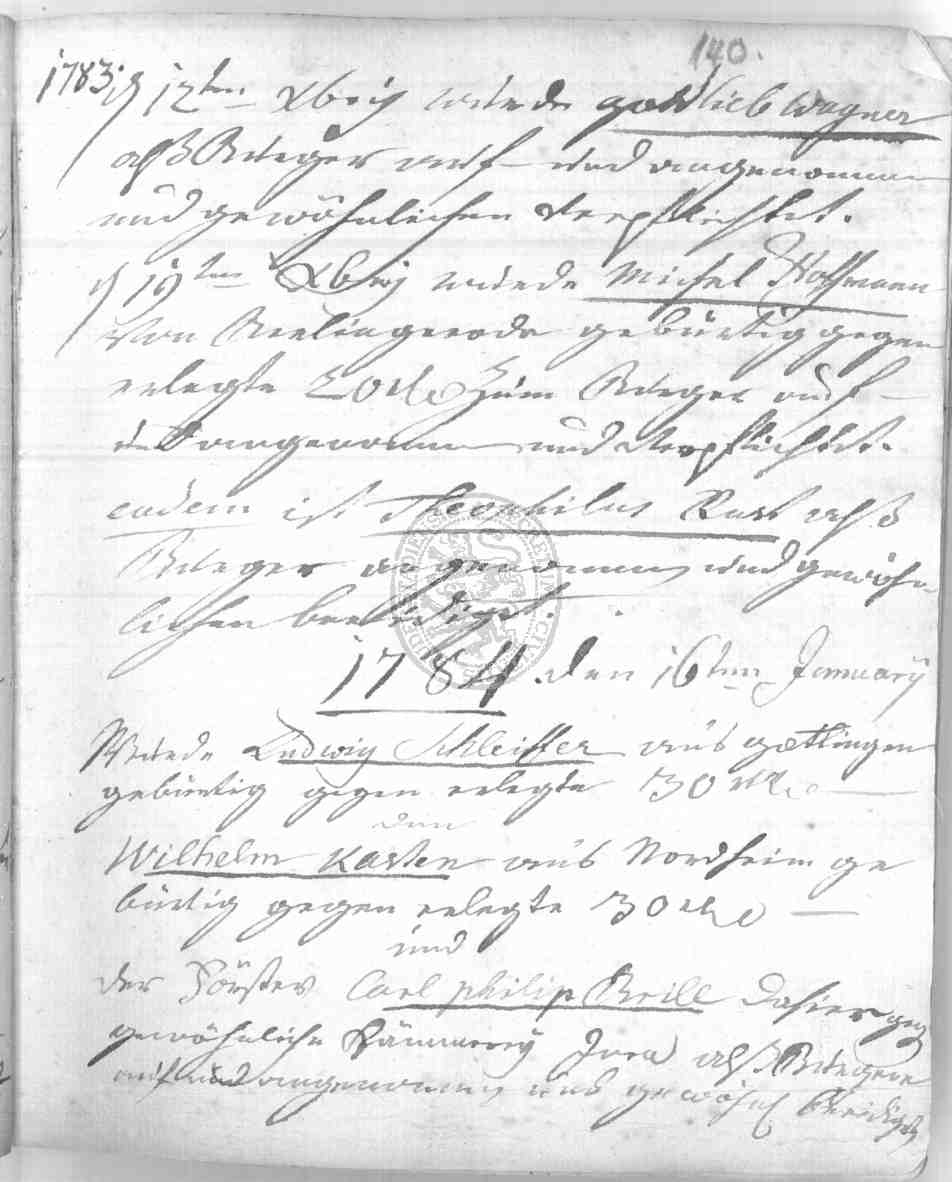 140.
1783. d 12ten Xbris wurde gottlieb Wagner
alß Bürger auf und angenommen
und gewöhnlichen verpflichtet.
d 19ten Xbris wurde Michel Hoffmann
von gebürtig gegen
erlegte 20 rthlr zum Bürger auf
und angenommen und verpflichtet.
eodem ist Theophilus Rust alß
Bürger angenommen und gewöhn-
lichen beeidiget.
1784 den 16ten January
Wurde Ludwig Schleiffer aus göttingen
gebürtig gegen erlegte 30 rthlr
den
Wilhelm Kasten aus Nordheim ge
bürtig gegen erlegte 30 rthlr
und
der Förster Carl philip Breill dahier geg
gewöhnliche Cämmerey Jura alß Bürgere
auf und angenommen und gewöhnl beeidiget